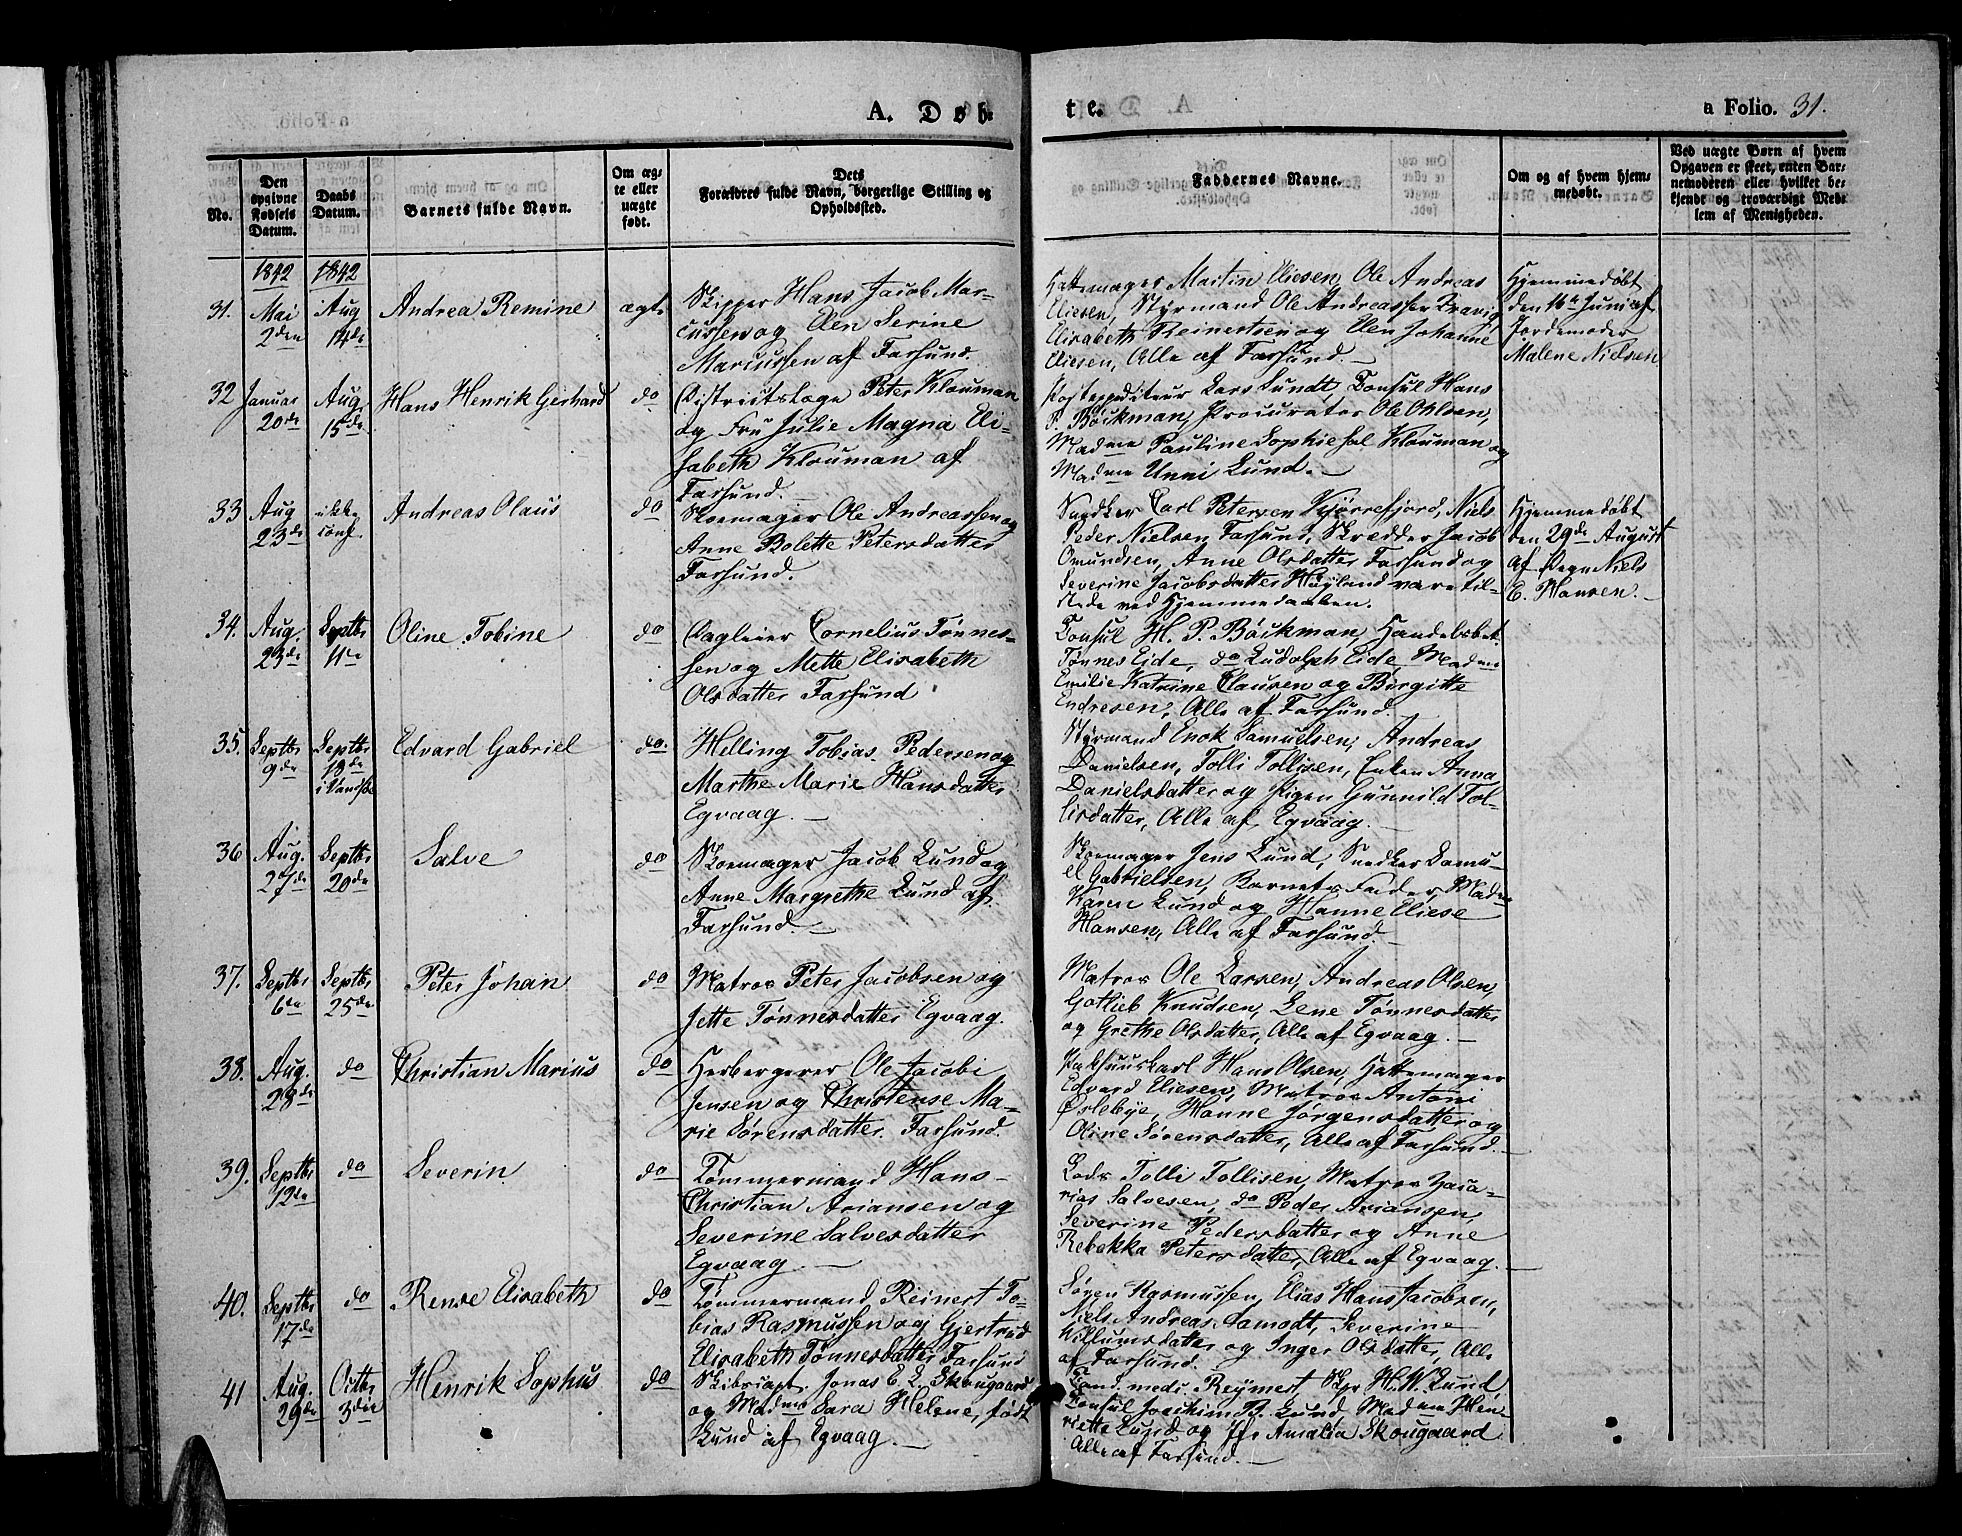 A. Døb-
te.
a Folio. 31.
No.
Den opgivne Fødsels Datum.
Daabs Datum.
Barnets fulde Navn.
Om ægte eller uægte født.
Dets Forældres fulde Navn, borgerlige Stilling og Opholdssted.
Faddernes Navne.
Om og af hvem hjemmedøbt.
Ved uægte Børn af hvem Opgaven er skeet, enten Barnemoderen eller hvilket bekjendt og troværdigt Medlem af Menigheden.
1842 1842
31. Mai 2den
Aug 14de
Andrea Remine
ægte
Skipper Hans Jacob Mar-
cussen og Elen Serine
Marcussen af Farsund.
Hattemager Martin Eliesen, Ole Andreas
Eliesen, Styrmand Ole Andreassen
Elisabeth Reinertsen og Elen Johanne
Eliesen, Alle af Farsund.
Hjemmedøbt
den 16de Juni af
Jordemoder
Malene Nielsen
32 Januar 20de
Aug. 15de
Hans Henrik Gerhard
do
Districtslæge Peter Klouman
og Fru Julie Magna Eli-
sabeth Klouman af
Farsund.
Postexpediteur Lars Lundt, Consul Hans
P. Böckman, Procurator Ole Ohlsen,
Madme Pauline Sophie Sal Klouman og
Madme Unni Lund.
33 Aug 23de
ikke conf.
Andreas Olaus
do
Skoemager Ole Andreassen og
Anne Bolette Petersdatter
Farsund.
Snedker Carl Petersen Kjørrefjord, Niels
Peder Nielsen Farsund, Skredder Jacob
Omundsen, Anne Olsdatter Farsund og
Severine Jacobsdatter Høyland vare til-
stede ved Hjemmedaaben.
Hjemmedøbt
den 29de August
af Niels
E. Hansen.
34. Aug. 23de
Septbr 11te
Oline Tobine
do
Dagleier Cornelius Tønnes-
sen og Mette Elisabeth
Olsdatter Farsund
Consul H. P. Böckman, Handelsbet.
Tønnes Eide, do Ludolph Eide, Madme
Emilie Katrine Clausen og Birgitte
Endresen, Alle af Farsund.
35. Septbr 9de
Septbr 19de i Vandsøe
Edvard Gabriel
do.
Helling Tobias Pedersen og
Marthe Marie Hansdatter
Egvaag.
Styrmand Enok Samuelsen, Andreas
Danielsen, Tolli Tollisen, Enken Anna
Danielsdatter og Pigen Gunnild Tol-
lisdatter, Alle af Egvaag.
36 Aug. 27de
Septbr 20de
Salve
do
Skoemager Jacob Lund og
Anne Margrethe Lund af
Farsund.
Skoemager Jens Lund, Snedker Samu-
el Gabrielsen, Barnets Fader, Madme
Karen Lund og Hanne Eliese
Hansen, Alle af Farsund.
37. Septbr 6te
Septbr 25de
Peter Johan
do
Matros Peter Jacobsen og
Jette Tønnesdatter Egvaag.
Matros Ole Larsen, Andreas Olsen,
Gotlieb Knudsen, Lene Tønnesdatter
og Grethe Olsdatter, Alle af Egvaag.
38. Aug. 28de
do
Christian Marius
do
Herbergerer Ole Jacobi
Jensen og Christense Ma-
rie Sörensdatter Farsund.
Pakhuuskarl Hans Olsen, Hattemager
Edvard Eliesen, Matros Antoni
Östebye, Hanne Jörgensdatter og
Oline Sörensdatter, Alle af Farsund.
39. Septbr 12te
do
Severin
do
Tømmermand Hans
Christian Ariansen og
Severine Salvesdatter
Egvaag.
Lods Tolli Tollisen, Matros Zaca-
rias Salvesen, do Peder Ariansen,
Severine Pedersdatter og Anne
Rebekka Petersdatter, Alle af Egvaag.
40. Septbr 17de
do
Rense Elisabeth
do
Tømmermand Reinert To-
bias Rasmussen og Gjertrud
Elisabeth Tønnesdatter Farsund
Sören Rasmussen, Elias Hans Jacobsen,
Niels Andreas Samodt, Severine
Villumsdatter og Inger Olsdatter, Alle
af Farsund.
41 Aug. 29de
Octbr 3die
Henrik Sophus
do
Skibscapt. Jonas E. L. Skougaard
og Madme Sara Helene, født
Lund af Egvaag.
Cand. medi. Reymert, Skpr H. W. Lund,
Consul Joachim B. Lund, Madme Hen-
riette Lund og Jfr Amalia Skougaard
Alle af Farsund.